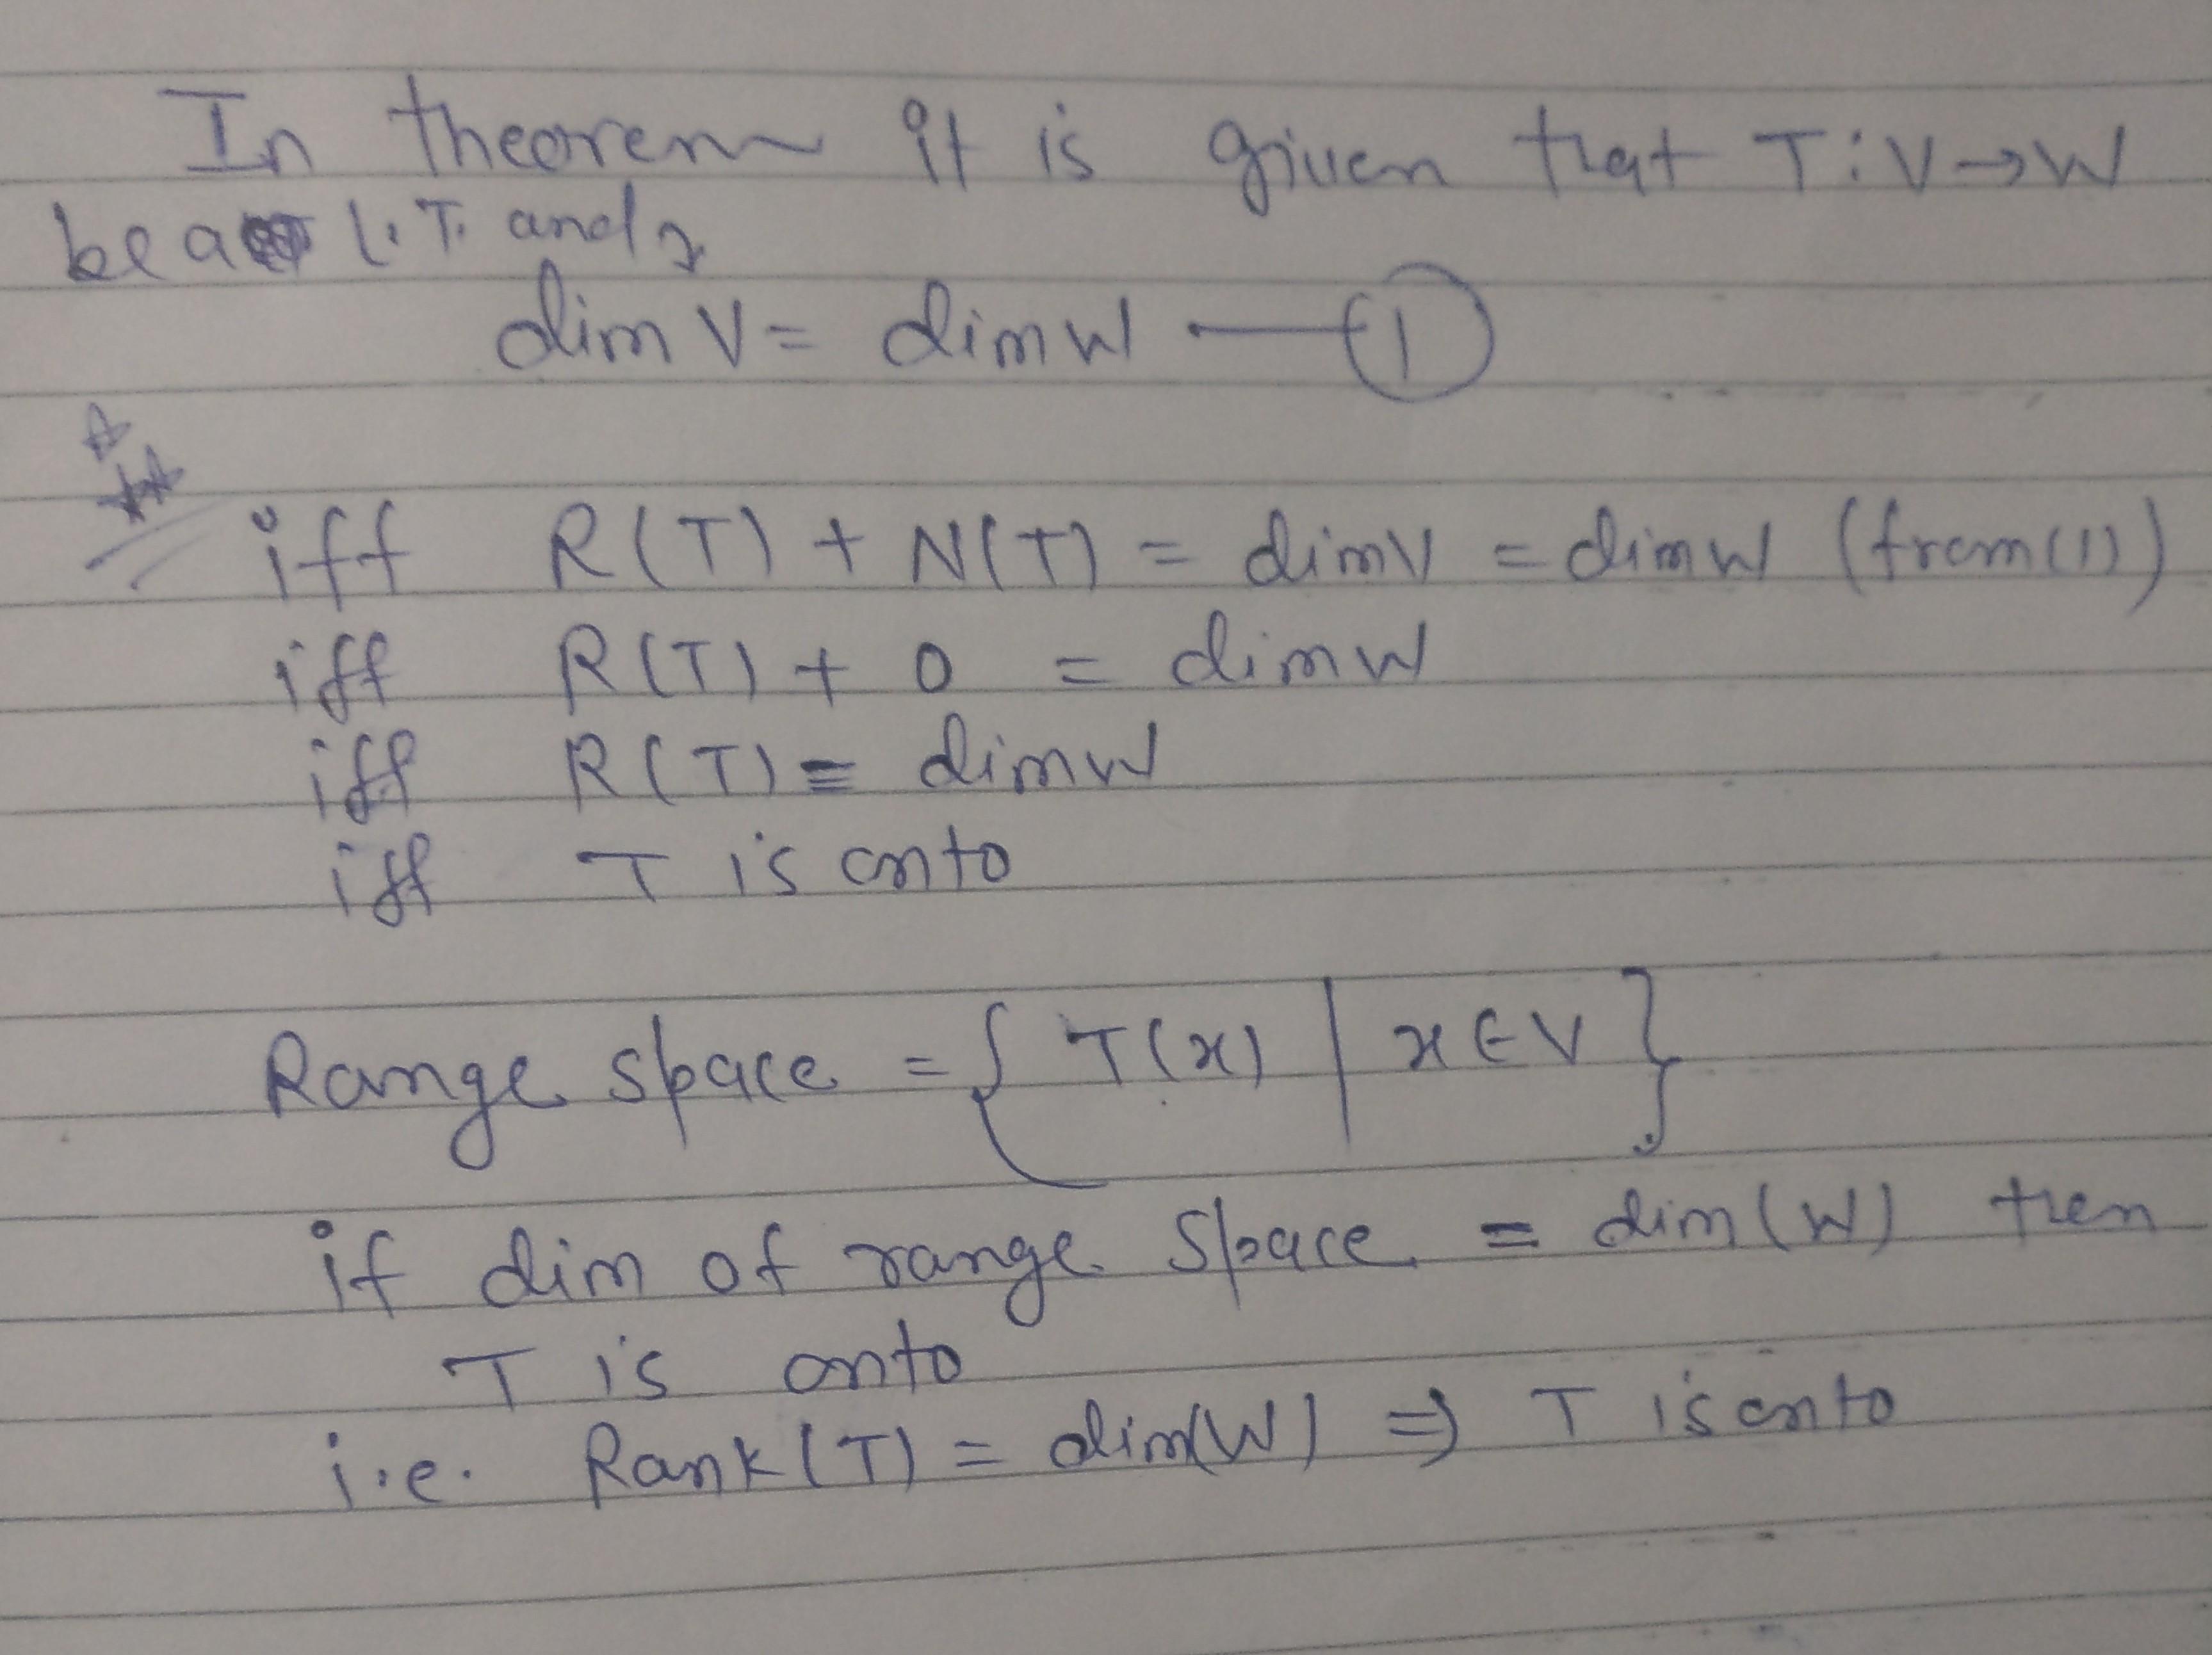 In theorem it is given that T:V→W
be a L.T. and
dim V = dim W —①
iff R(T) + N(T) = dim V = dim W (from(1))
iff R(T) + 0 = dim W
iff R(T) = dim W
iff T is onto
Range space = { T(x) | x ∈ V }
if dim of range space = dim(W) then
T is onto
i.e. Rank(T) = dim(W) ⇒ T is onto